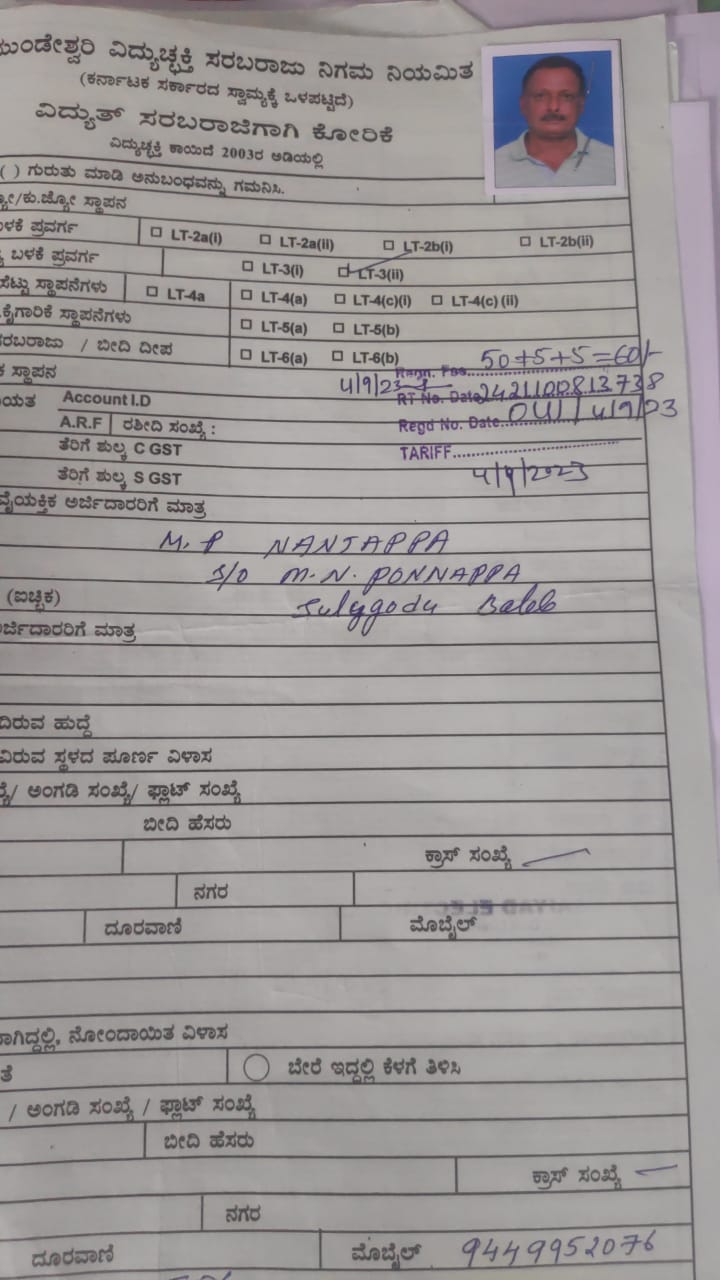 ಮುಂಡೇಶ್ವರಿ ವಿದ್ಯುಚ್ಛಕ್ತಿ ಸರಬರಾಜು ನಿಗಮ ನಿಯಮಿತ
(ಕರ್ನಾಟಕ ಸರ್ಕಾರದ ಸ್ವಾಮ್ಯಕ್ಕೆ ಒಳಪಟ್ಟಿದೆ)
ವಿದ್ಯುತ್ ಸರಬರಾಜಿಗಾಗಿ ಕೋರಿಕೆ
ವಿದ್ಯುಚ್ಛಕ್ತಿ ಕಾಯಿದೆ 2003ರ ಅಡಿಯಲ್ಲಿ
( ) ಗುರುತು ಮಾಡಿ ಅನುಬಂಧವನ್ನು ಗಮನಿಸಿ.
/ಕು.ಜ್ಯೋ ಸ್ಥಾಪನ
ಳಕೆ ಪ್ರವರ್ಗ LT-2a(i) LT-2a(ii) LT-2b(i) LT-2b(ii)
ಬಳಕೆ ಪ್ರವರ್ಗ LT-3(i) LT-3(ii)
ಸೆಟ್ಟು ಸ್ಥಾಪನೆಗಳು LT-4a LT-4(a) LT-4(c)(i) LT-4(c) (ii)
ಕೈಗಾರಿಕೆ ಸ್ಥಾಪನೆಗಳು LT-5(a) LT-5(b)
ರಬರಾಜು / ಬೀದಿ ದೀಪ LT-6(a) LT-6(b)
ಕ ಸ್ಥಾಪನ 4/9/23 Regn. Fee 50+5+5=60/-
ಯತ Account I.D RT No. Date 2421100813738
A.R.F ರಶೀದಿ ಸಂಖ್ಯೆ : Regd No. Date 04/ 4/9/23
ತೆರಿಗೆ ಶುಲ್ಕ C GST TARIFF
ತೆರಿಗೆ ಶುಲ್ಕ S GST 4/9/2023
ವೈಯಕ್ತಿಕ ಅರ್ಜಿದಾರರಿಗೆ ಮಾತ್ರ
M. P NANJAPPA
S/O M.N. PONNAPPA
(ಐಚ್ಛಿಕ)
ರ್ಜಿದಾರರಿಗೆ ಮಾತ್ರ
ದಿರುವ ಹುದ್ದೆ
ವಿರುವ ಸ್ಥಳದ ಪೂರ್ಣ ವಿಳಾಸ
/ ಅಂಗಡಿ ಸಂಖ್ಯೆ/ ಫ್ಲಾಟ್ ಸಂಖ್ಯೆ
ಬೀದಿ ಹೆಸರು
ಕ್ರಾಸ್ ಸಂಖ್ಯೆ
ನಗರ
ದೂರವಾಣಿ ಮೊಬೈಲ್
ಾಗಿದ್ದಲ್ಲಿ, ನೋಂದಾಯಿತ ವಿಳಾಸ
ತೆ ಬೇರೆ ಇದ್ದಲ್ಲಿ ಕೆಳಗೆ ತಿಳಿಸಿ
/ ಅಂಗಡಿ ಸಂಖ್ಯೆ / ಫ್ಲಾಟ್ ಸಂಖ್ಯೆ
ಬೀದಿ ಹೆಸರು
ಕ್ರಾಸ್ ಸಂಖ್ಯೆ
ನಗರ
ದೂರವಾಣಿ ಮೊಬೈಲ್ 9449952076